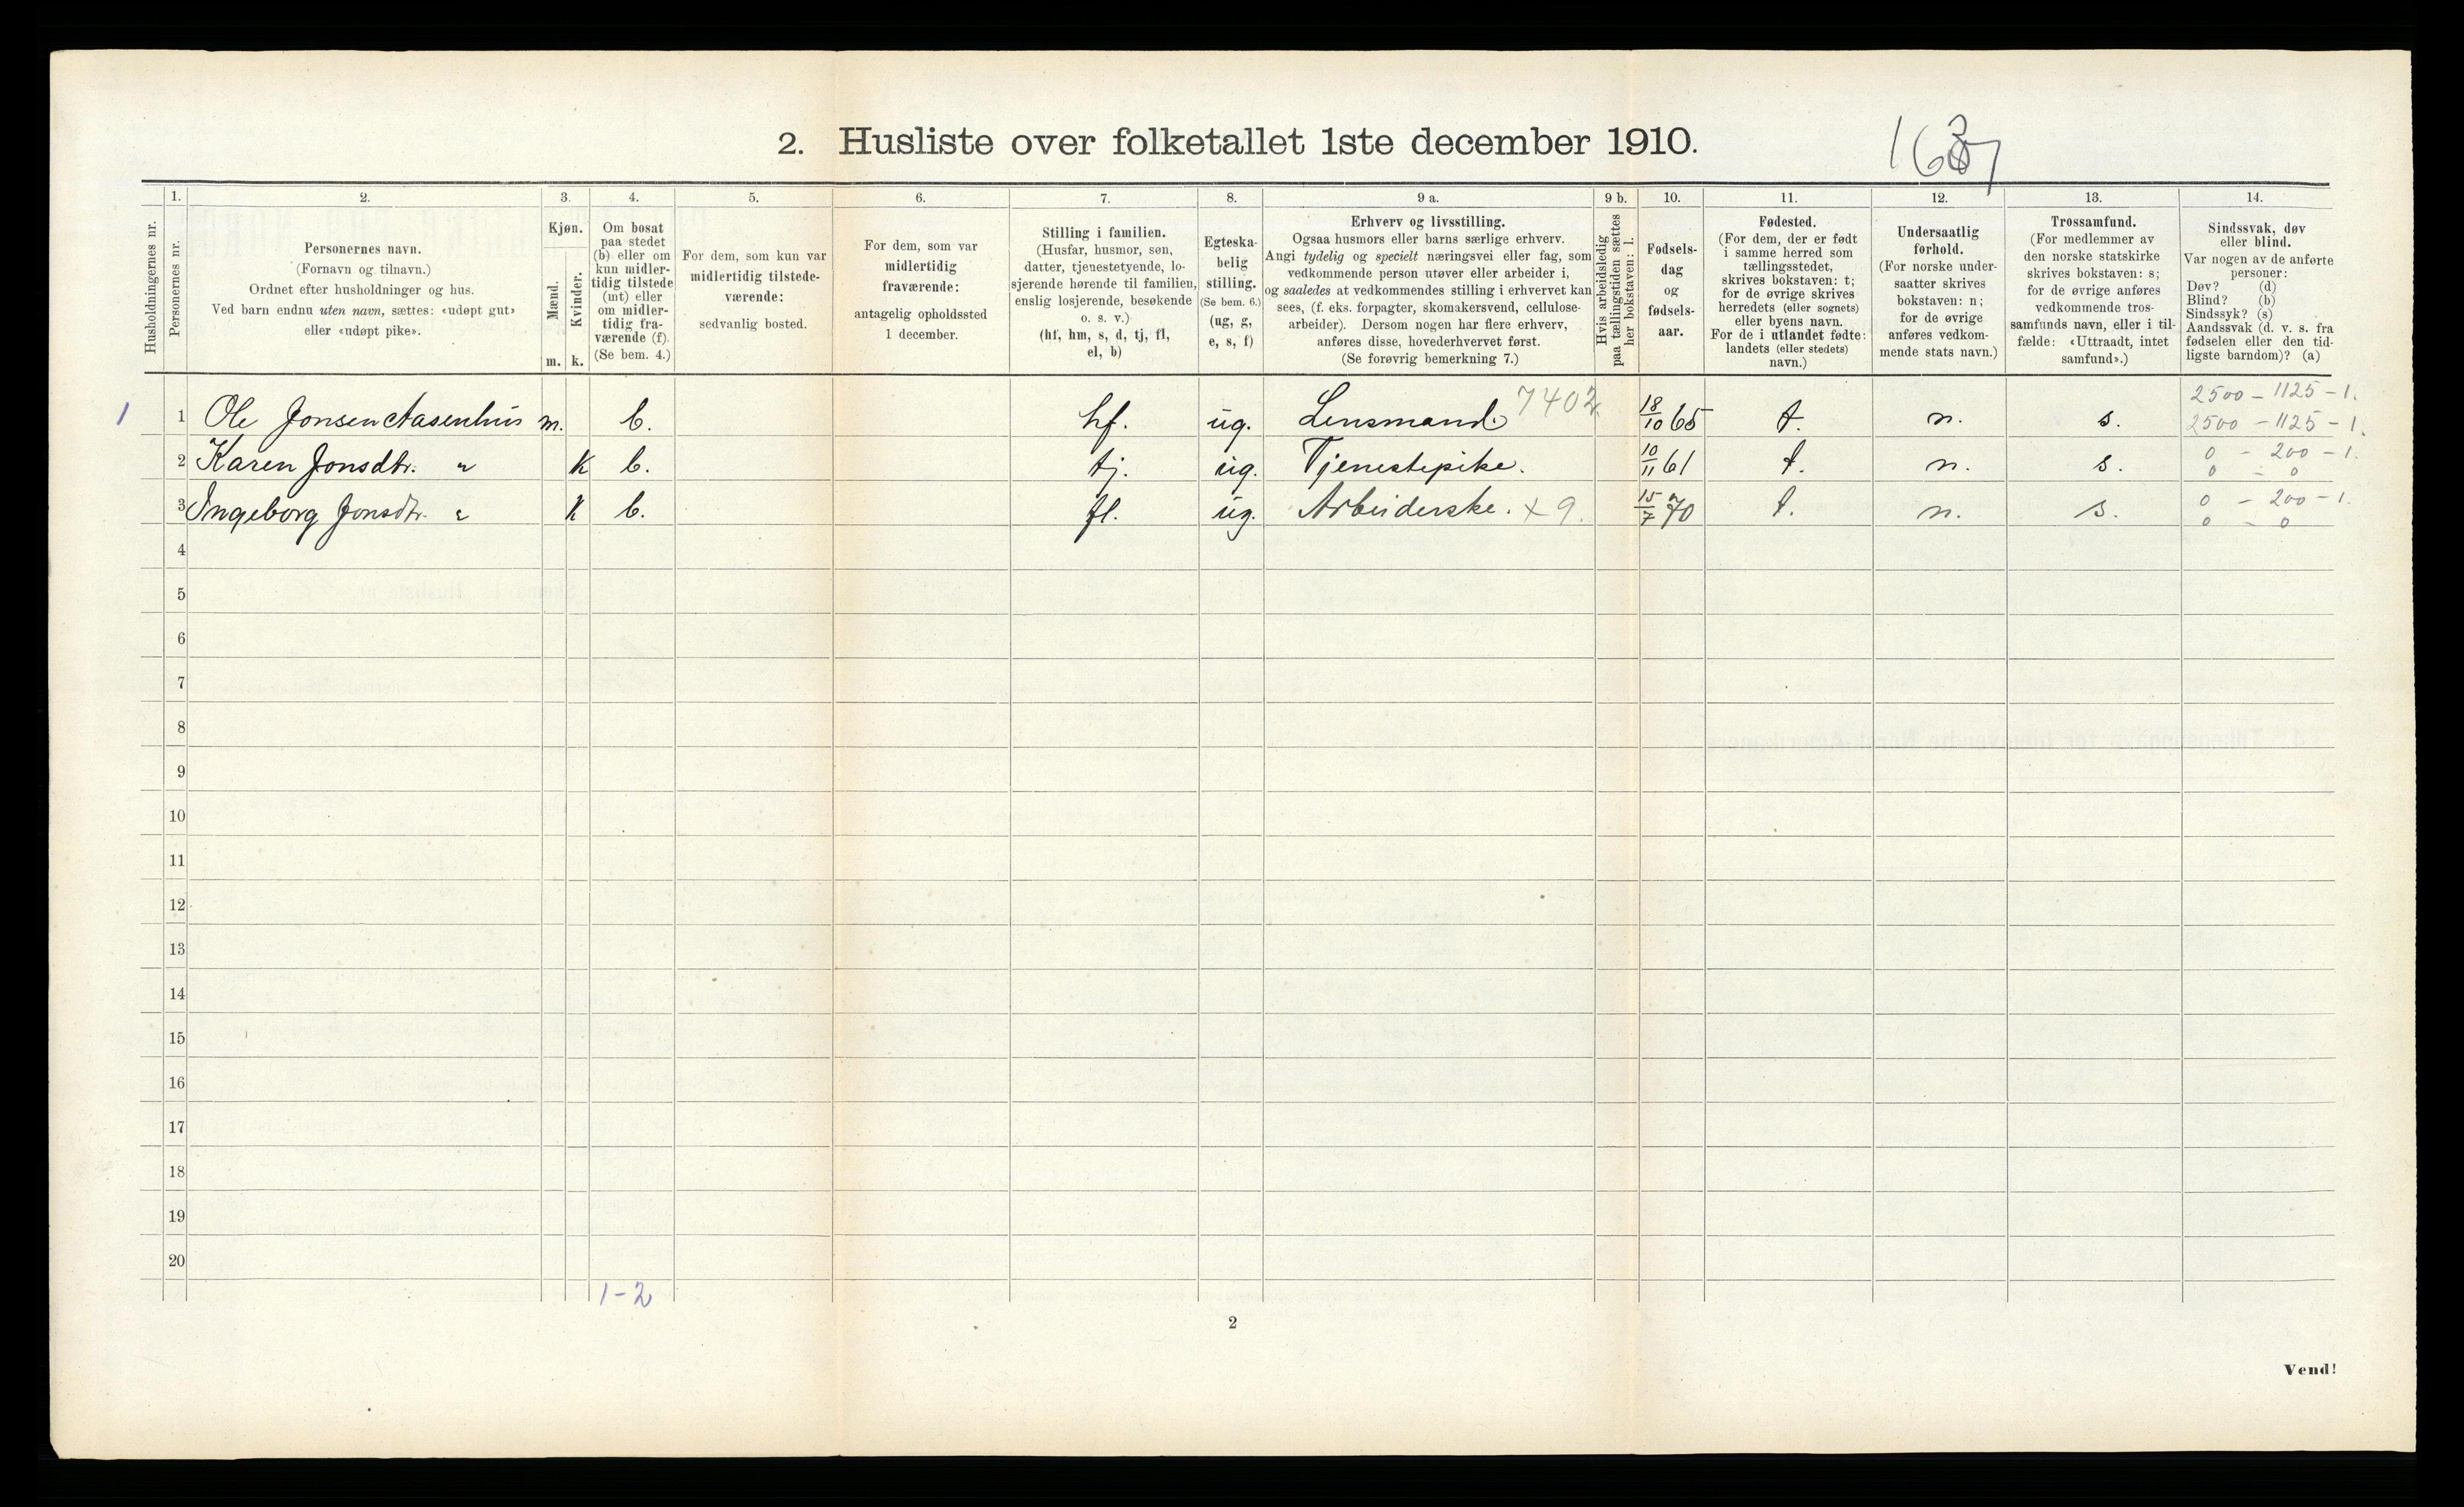 2. Husliste over folketallet 1ste december 1910.
1. 2. 3. 4. 5. 6. 7. 8. 9 a. 9 b. 10. 11. 12. 13. 14.
Husholdningernes nr.
Personernes nr.
Personernes navn.
(Fornavn og tilnavn.)
Ordnet efter husholdninger og hus.
Ved barn endnu uten navn, sættes: «udøpt gut»
eller «udøpt pike».
Kjøn.
Mænd.
Kvinder.
m. k.
Om bosat
paa stedet
(b) eller om
kun midler-
tidig tilstede
(mt) eller
om midler-
tidig fra-
værende (f).
(Se bem. 4.)
For dem, som kun var
midlertidig tilstede-
værende:
sedvanlig bosted.
For dem, som var
midlertidig
fraværende:
antagelig opholdssted
1 december.
Stilling i familien.
(Husfar, husmor, søn,
datter, tjenestetyende, lo-
sjerende hørende til familien,
enslig losjerende, besøkende
o. s. v.)
(hf, hm, s, d, tj, fl,
el, b)
Egteska-
belig
stilling.
(Se bem. 6.)
(ug, g,
e, s, f)
Erhverv og livsstilling.
Ogsaa husmors eller barns særlige erhverv.
Angi tydelig og specielt næringsvei eller fag, som
vedkommende person utøver eller arbeider i,
og saaledes at vedkommendes stilling i erhvervet kan
sees, (f. eks. forpagter, skomakersvend, cellulose-
arbeider). Dersom nogen har flere erhverv,
anføres disse, hovederhvervet først.
(Se forøvrig bemerkning 7.)
Hvis arbeidsledig
paa tællingstiden sættes
her bokstaven: l.
Fødsels-
dag
og
fødsels-
aar.
Fødested.
(For dem, der er født
i samme herred som
tællingsstedet,
skrives bokstaven: t;
for de øvrige skrives
herredets (eller sognets)
eller byens navn.
For de i utlandet fødte:
landets (eller stedets)
navn.)
Undersaatlig
forhold.
(For norske under-
saatter skrives
bokstaven: n;
for de øvrige
anføres vedkom-
mende stats navn.)
Trossamfund.
(For medlemmer av
den norske statskirke
skrives bokstaven: s;
for de øvrige anføres
vedkommende tros-
samfunds navn, eller i til-
fælde: «Uttraadt, intet
samfund».)
Sindssvak, døv
eller blind.
Var nogen av de anførte
personer:
Døv? (d)
Blind? (b)
Sindssyk? (s)
Aandssvak (d. v. s. fra
fødselen eller den tid-
ligste barndom)? (a)
2500 – 1125 – 1.
1 1 Ole Jonsen Aasenhus m. b. hf. ug. Lensmand. 7402 18/10 65 t. n. s. 2500 – 1125 – 1.
2 Karen Jonsdtr. " k b. tj. ug. Tjenestepike. 10/11 61 t. n. s. 0 – 200 – 1.
0 – 0
3 Ingeborg Jonsdtr. " k b. fl. ug. Arbeiderske. x 9. 15/7 70 t. n. s. 0 – 200 – 1.
0 – 0
4
5
6
7
8
9
10
11
12
13
14
15
16
17
18
19
20
1–2
2
Vend!